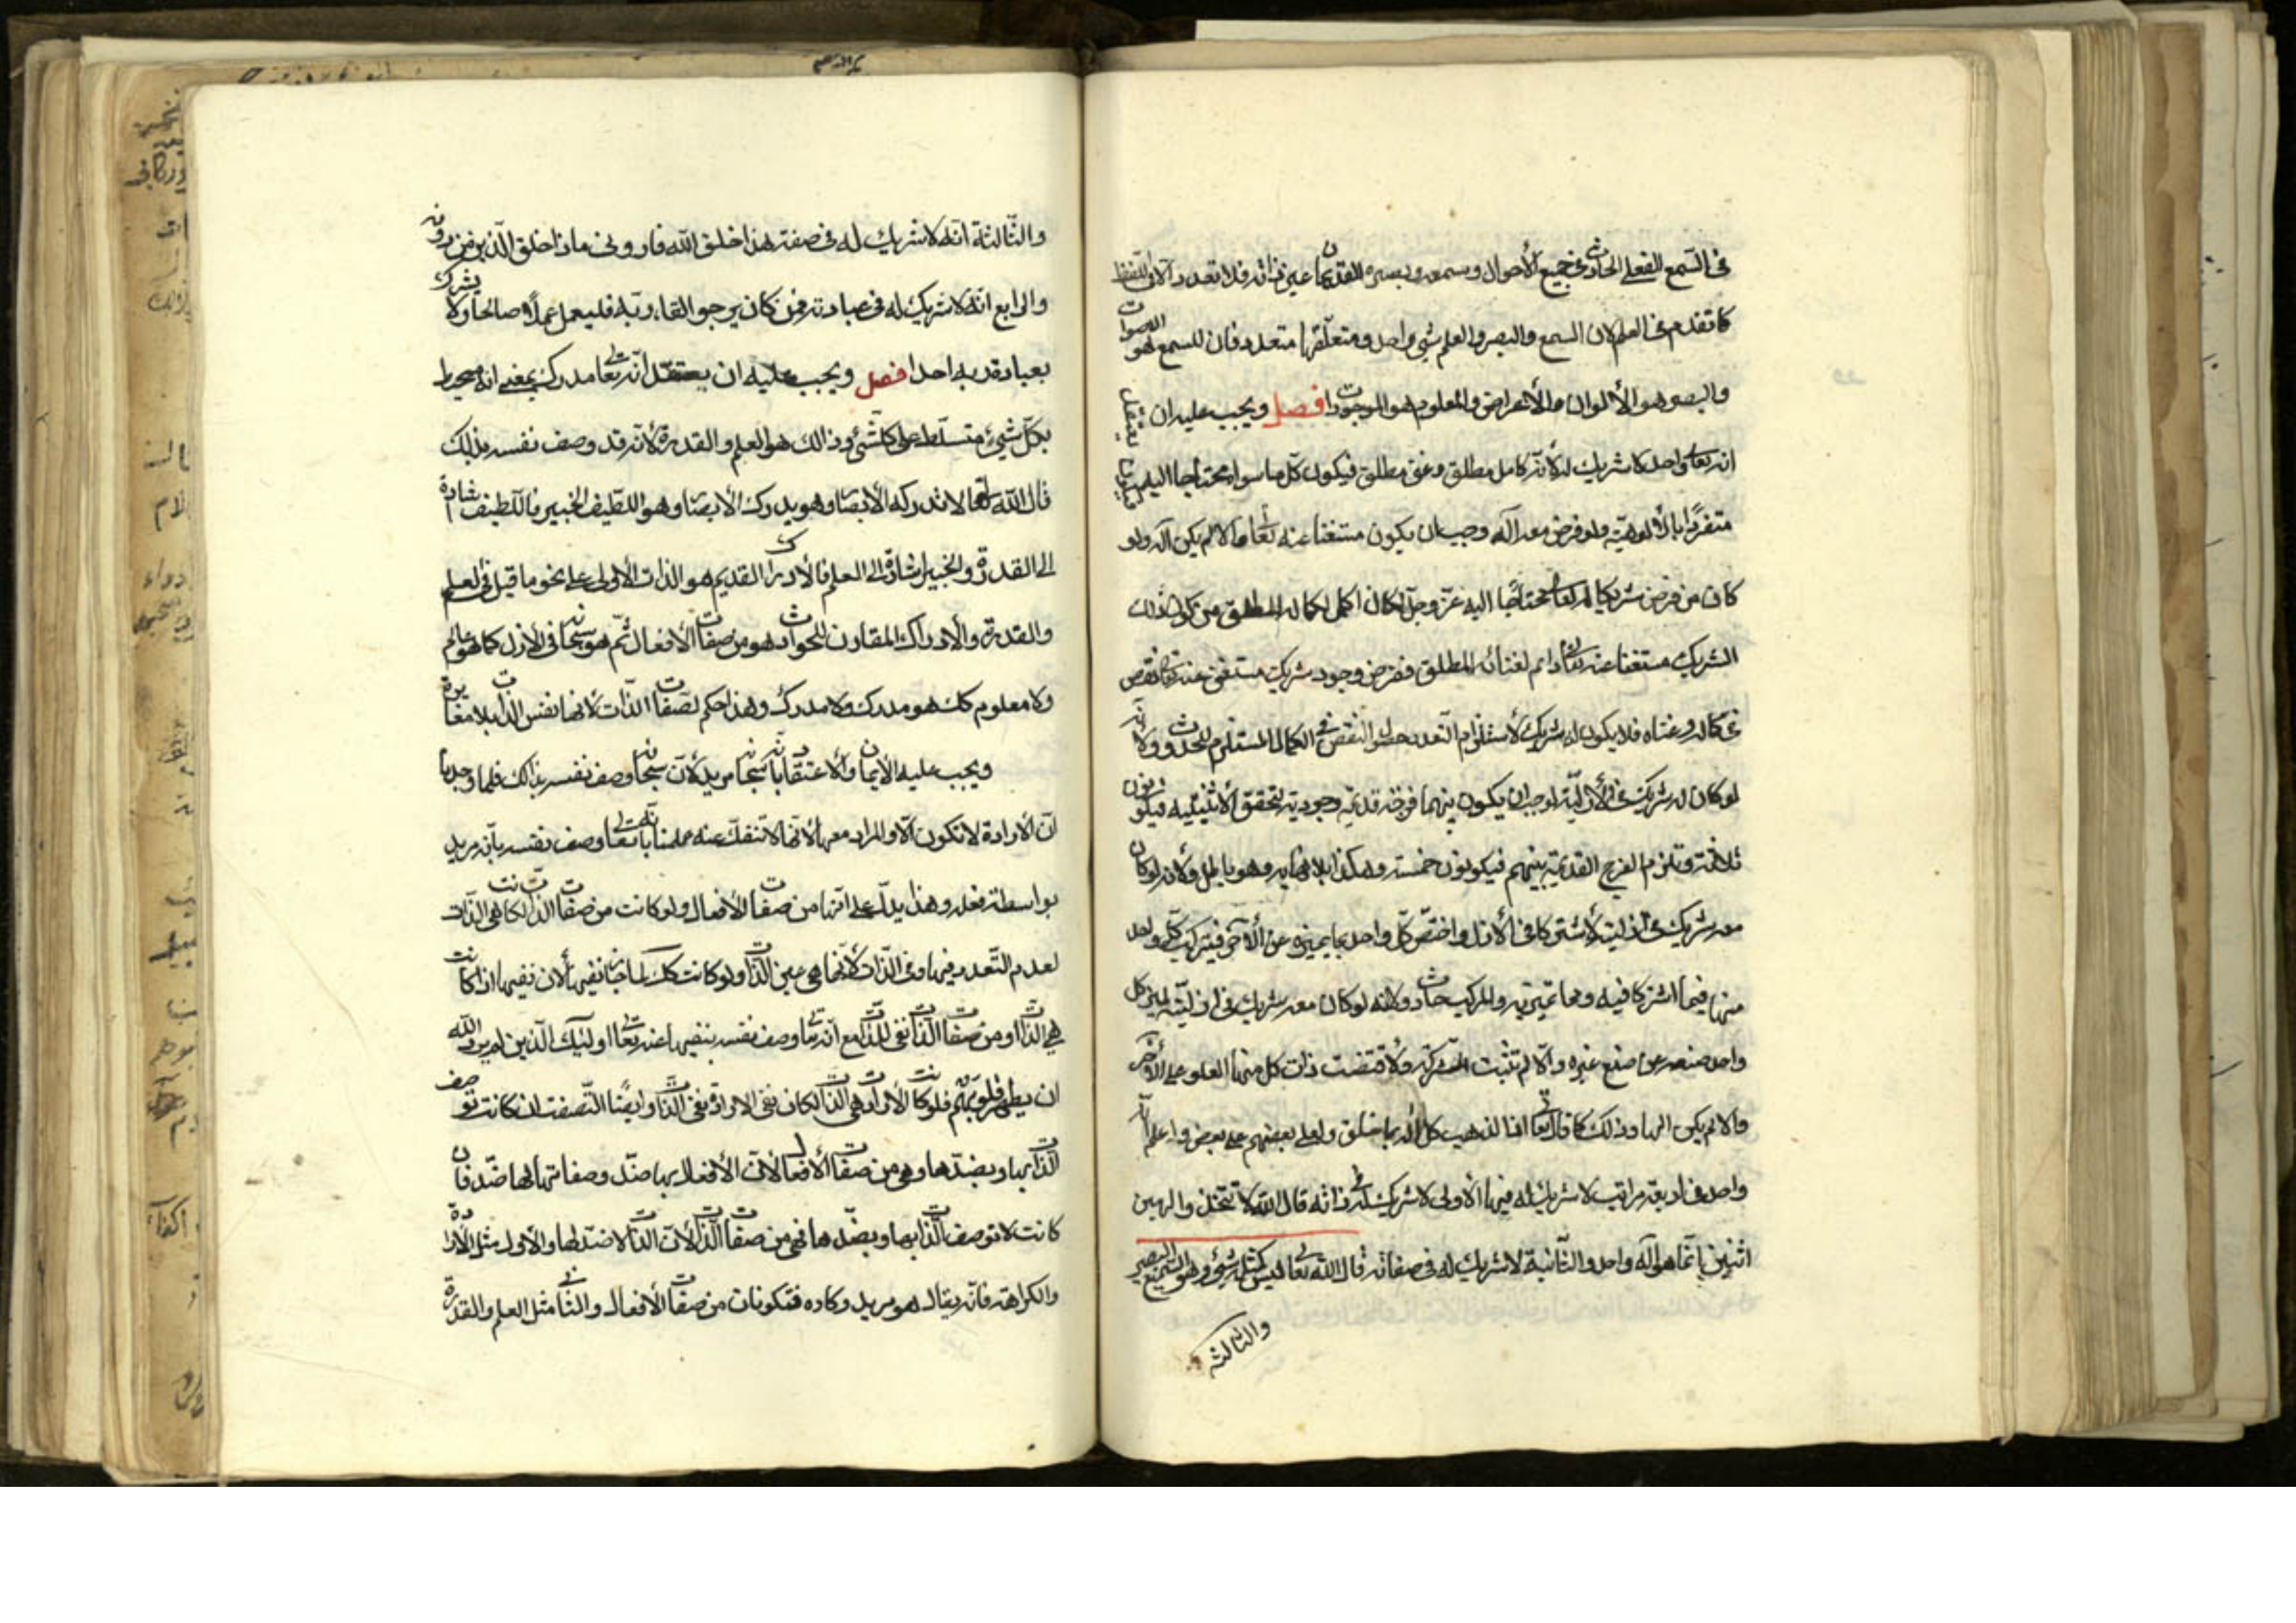 في السمع الفعلي الحادث في جميع الأحوال وسمعه وبصره القديمان عين ذاته فلا تعدد الا في اللفظ
كما تقدم في العلم لان السمع والبصر والعلم شيء واحد ومتعلقها متعدد فان للسمع هو الاصوات
والبصر هو الألوان والأعراض والمعلوم هو الموجودات فصل ويجب عليه ان يعتقد
انه تعالى واحد لا شريك له لأنه كامل مطلق وغني مطلق فيكون كل ما سواه محتاجا اليه
متفردا بالألوهية ولو فرض معه آله وجب ان يكون مستغنيا عنه تعالى والا لم يكن اله ولو
كان من فرض شريكا له تعالى محتاجا اليه عز وجل لكان اكمل لكماله المطلق من كون ذلك
الشريك مستغنيا عنه تعالى دايم لغنائه المطلق ففرض وجود شريك مستغني عنه تعالى نقص
في كماله وغناه فلا يكون له شريك لاستلزام التعدد حصول النقص في الكمال المستلزم للحدوث ولأنه
لو كان له شريك في الأزلية لوجب ان يكون بينهما فرجة قديمة وجودية لتحقق الاثنينية فيكونون
ثلاثة وتلزم الفرج القديمة بينهم فيكونون خمسة وهكذا بلا نهاية وهو باطل ولأنه لو كان
معه شريك في ازليته لأشتركا في الأزل واختص كل واحد بما يميزه عن الآخر فيتركب كل واحد
منهما فيما اشتركا فيه ومما تميز به والمركب حادث ولانه لو كان معه شريك في ازليته لميز كل
واحد صنعه عن صنع غيره والا لم تثبت الشركة ولأقتضت ذات كل منهما العلو على الأخر
والا لم يكن الها وذلك كما قال تعالى اذا لذهب كل اله بما خلق ولعلى بعضهم على بعض واعلم انه
واحد في اربعة مراتب لا شريك له فيها الأولى لا شريك له في ذاته قال الله لا تتخذوا الهين
اثنين إنما هو آله واحد والثانية لا شريك له في صفاته قال الله تعالى ليس كمثله شيء وهو السميع البصير
والثالثة
والثالثة انه لا شريك له في صنعه هذا خلق الله فاروني ماذا خلق الذين من دونه
والرابع انه لا شريك له في عبادته فمن كان يرجو القاء ربه فليعمل عملا صالحا ولا يشرك
بعبادة ربه احدا فصل ويجب عليه ان يعتقد انه تعالى مدرك بمعنى انه محيط
بكل شيء متسلط على كل شيء وذالك هو العلم والقدرة لأنه قد وصف نفسه بذلك
قال الله تعالى لا تدركه الأبصار وهو يدرك الأبصار وهو اللطيف الخبير فاللطيف اشارة
الى القدرة والخبير اشارة الى العلم فالأدراك القديم هو الذات الأولى على نحو ما قيل في العلم
والقدرة والادراك المقارن للحوادث هو من صفات الأفعال ثم هو سبحانه في الأزل كما هو عالم
ولا معلوم كذلك هو مدرك ولا مدرك وهذا حكم لصفات الذات لأنها نفس الذات بلا مغايرة
ويجب عليه الأيمان والأعتقاد بانه سبحانه مريد لأنه سبحانه وصف نفسه بذالك فلما وجدنا
ان الأرادة لا تكون الا والمراد معها لأنها لا تنفك عنه علمنا بانه تعالى وصف نفسه بانه مريد
بواسطة فعله وهذا يدل على انها من صفات الأفعال ولو كانت من صفات الذات لكانت هي الذات
لعدم التعدد فيها وفي الذات لأنها هي عين الذات ولو كانت كذلك لما جاز نفيها لأن نفيها اذا كانت
هي الذات او من صفات الذات نفي للذات مع انه تعالى وصف نفسه بنفيها عنه تعالى اولئك الذين لم يرد الله
ان يطهر قلوبهم فلو كانت الأرادة هي الذات لكان نفي الارادة نفي الذات وايضا الصفة ان كانت توصف
الذات بها وبضدها وهي من صفات الأفعال لان الأفعال بها ضد وصفاتها لها ضد فان
كانت لا توصف الذات بها وبضدها فهي من صفات الذات لأن الذات لا ضد لها والأول مثل الأرادة
والكراهة فانه يقال هو مريد وكاره فتكونان من صفات الأفعال والثاني مثل العلم والقدرة